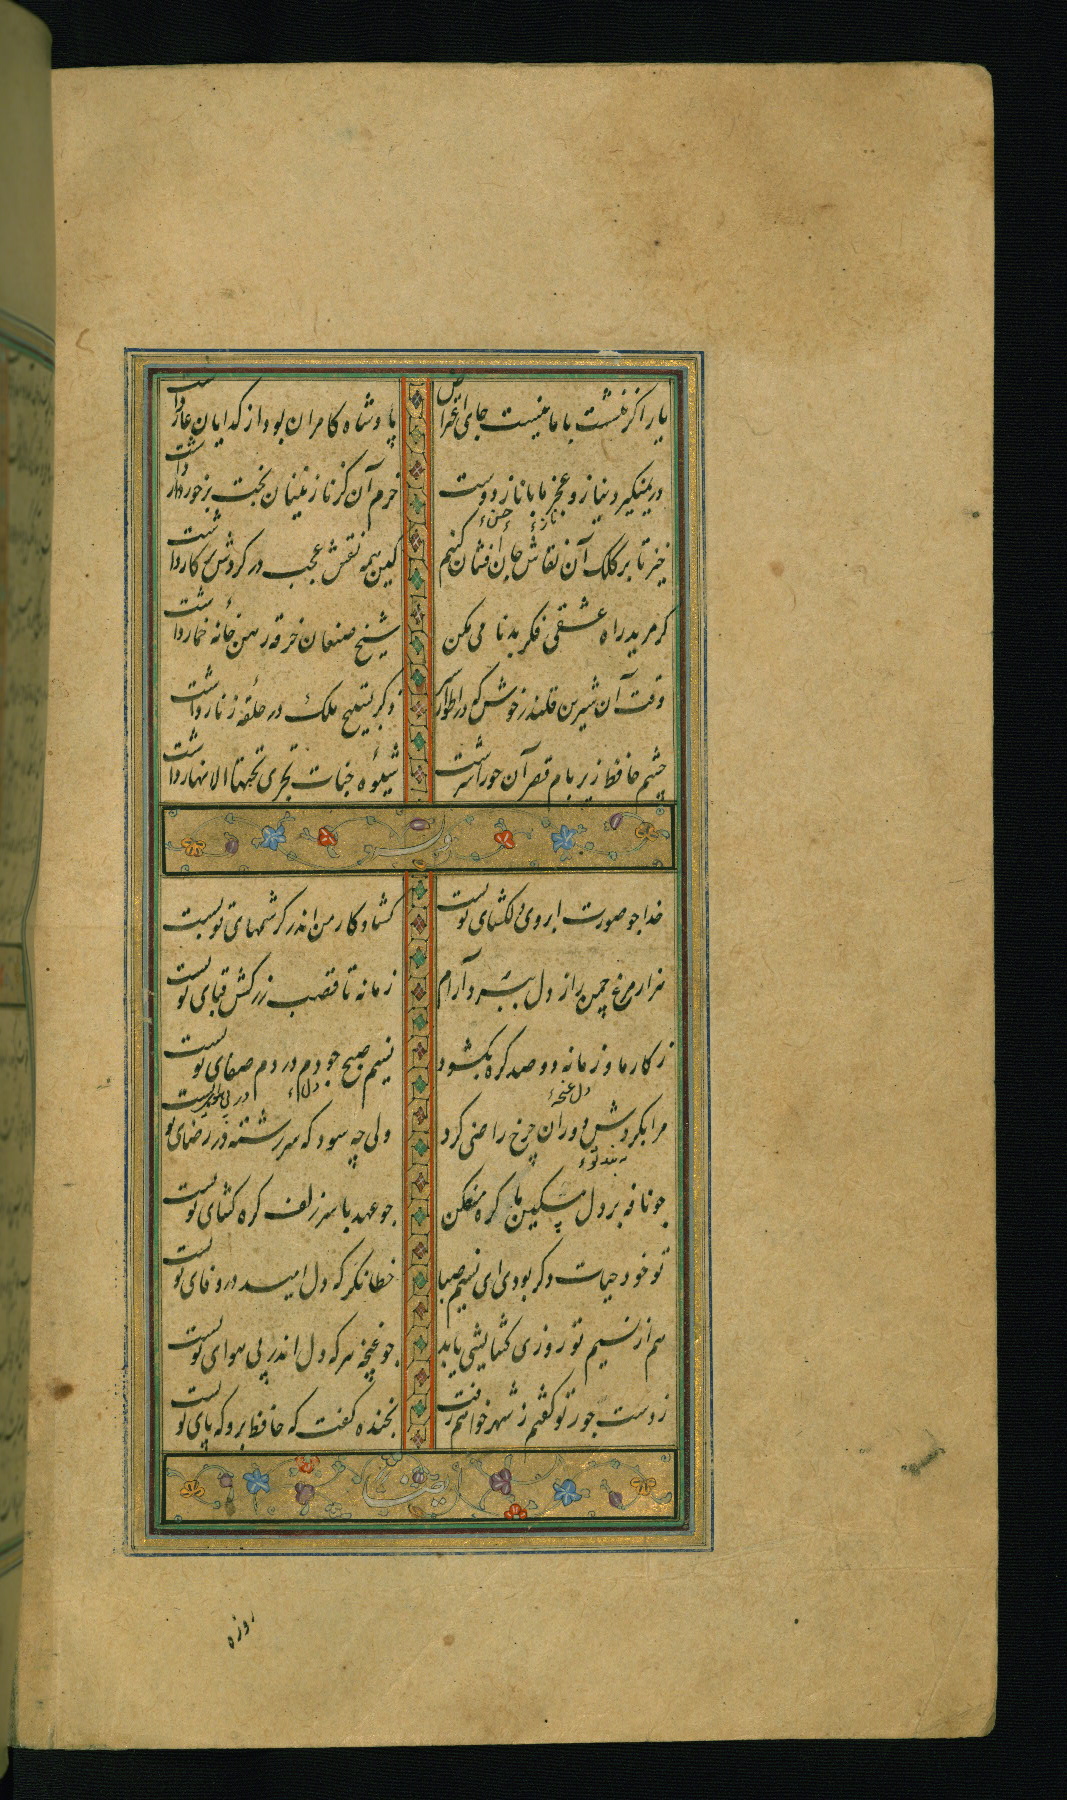 یار اکر ننشست با ما نیست جای اعتراض
پادشاه کامران بود از کدایان عار داشت
در نمیکیرد نیاز و عجز ما با ناز دوست
خرم آن کز نازنینان بخت برخوردار داشت
حسن
ناز
خیز تا بر کلک آن نقاش جان افشان کنیم
کین همه نقش عجب در کردش پرکار داشت
کر مرید راه عشقی فکر بدنامی مکن
شیخ صنعان خرقه رهن خانه خمار داشت
وقت آن شیرین قلندر خوش که در اطوار
ذکر تسبیح ملک در حلقه زنار داشت
چشم حافظ زیر بام قصر آن حورا سرشت
شیوه جنات تجری تحتها الانهار داشت
خدا جو صورت ابروی دلکشای تو بست
کشاد کار من اندر کرشمهای تو بست
هزار مرغ چمن را ز دل ببرد آرام
زمانه تا قصب زرکش قبای تو بست
ز کار ما و زمانه دو صد کره بکشود
نسیم صبح جو دم در دم صفای تو بست
دل غنچه
دل
مرا بکردش دوران چرخ راضی کرد
ولی چه سود که سر رشته در رضای تو بست
به بند تو
جو نافه بر دل مسکین ما کره مفکن
جو عهد با سر زلف کره کشای تو بست
تو خود حیات دکر بودی ای نسیم صبا
خطا نکر که دل امید در وفای تو بست
هم از نسیم تو روزی کشایشی یابد
جو غنچه هر که دل اندر پی هوای تو بست
ز دست جور تو کفتم ز شهر خواهم رفت
بخنده کفت که حافظ برو که پای تو بست
ایضا
روزه